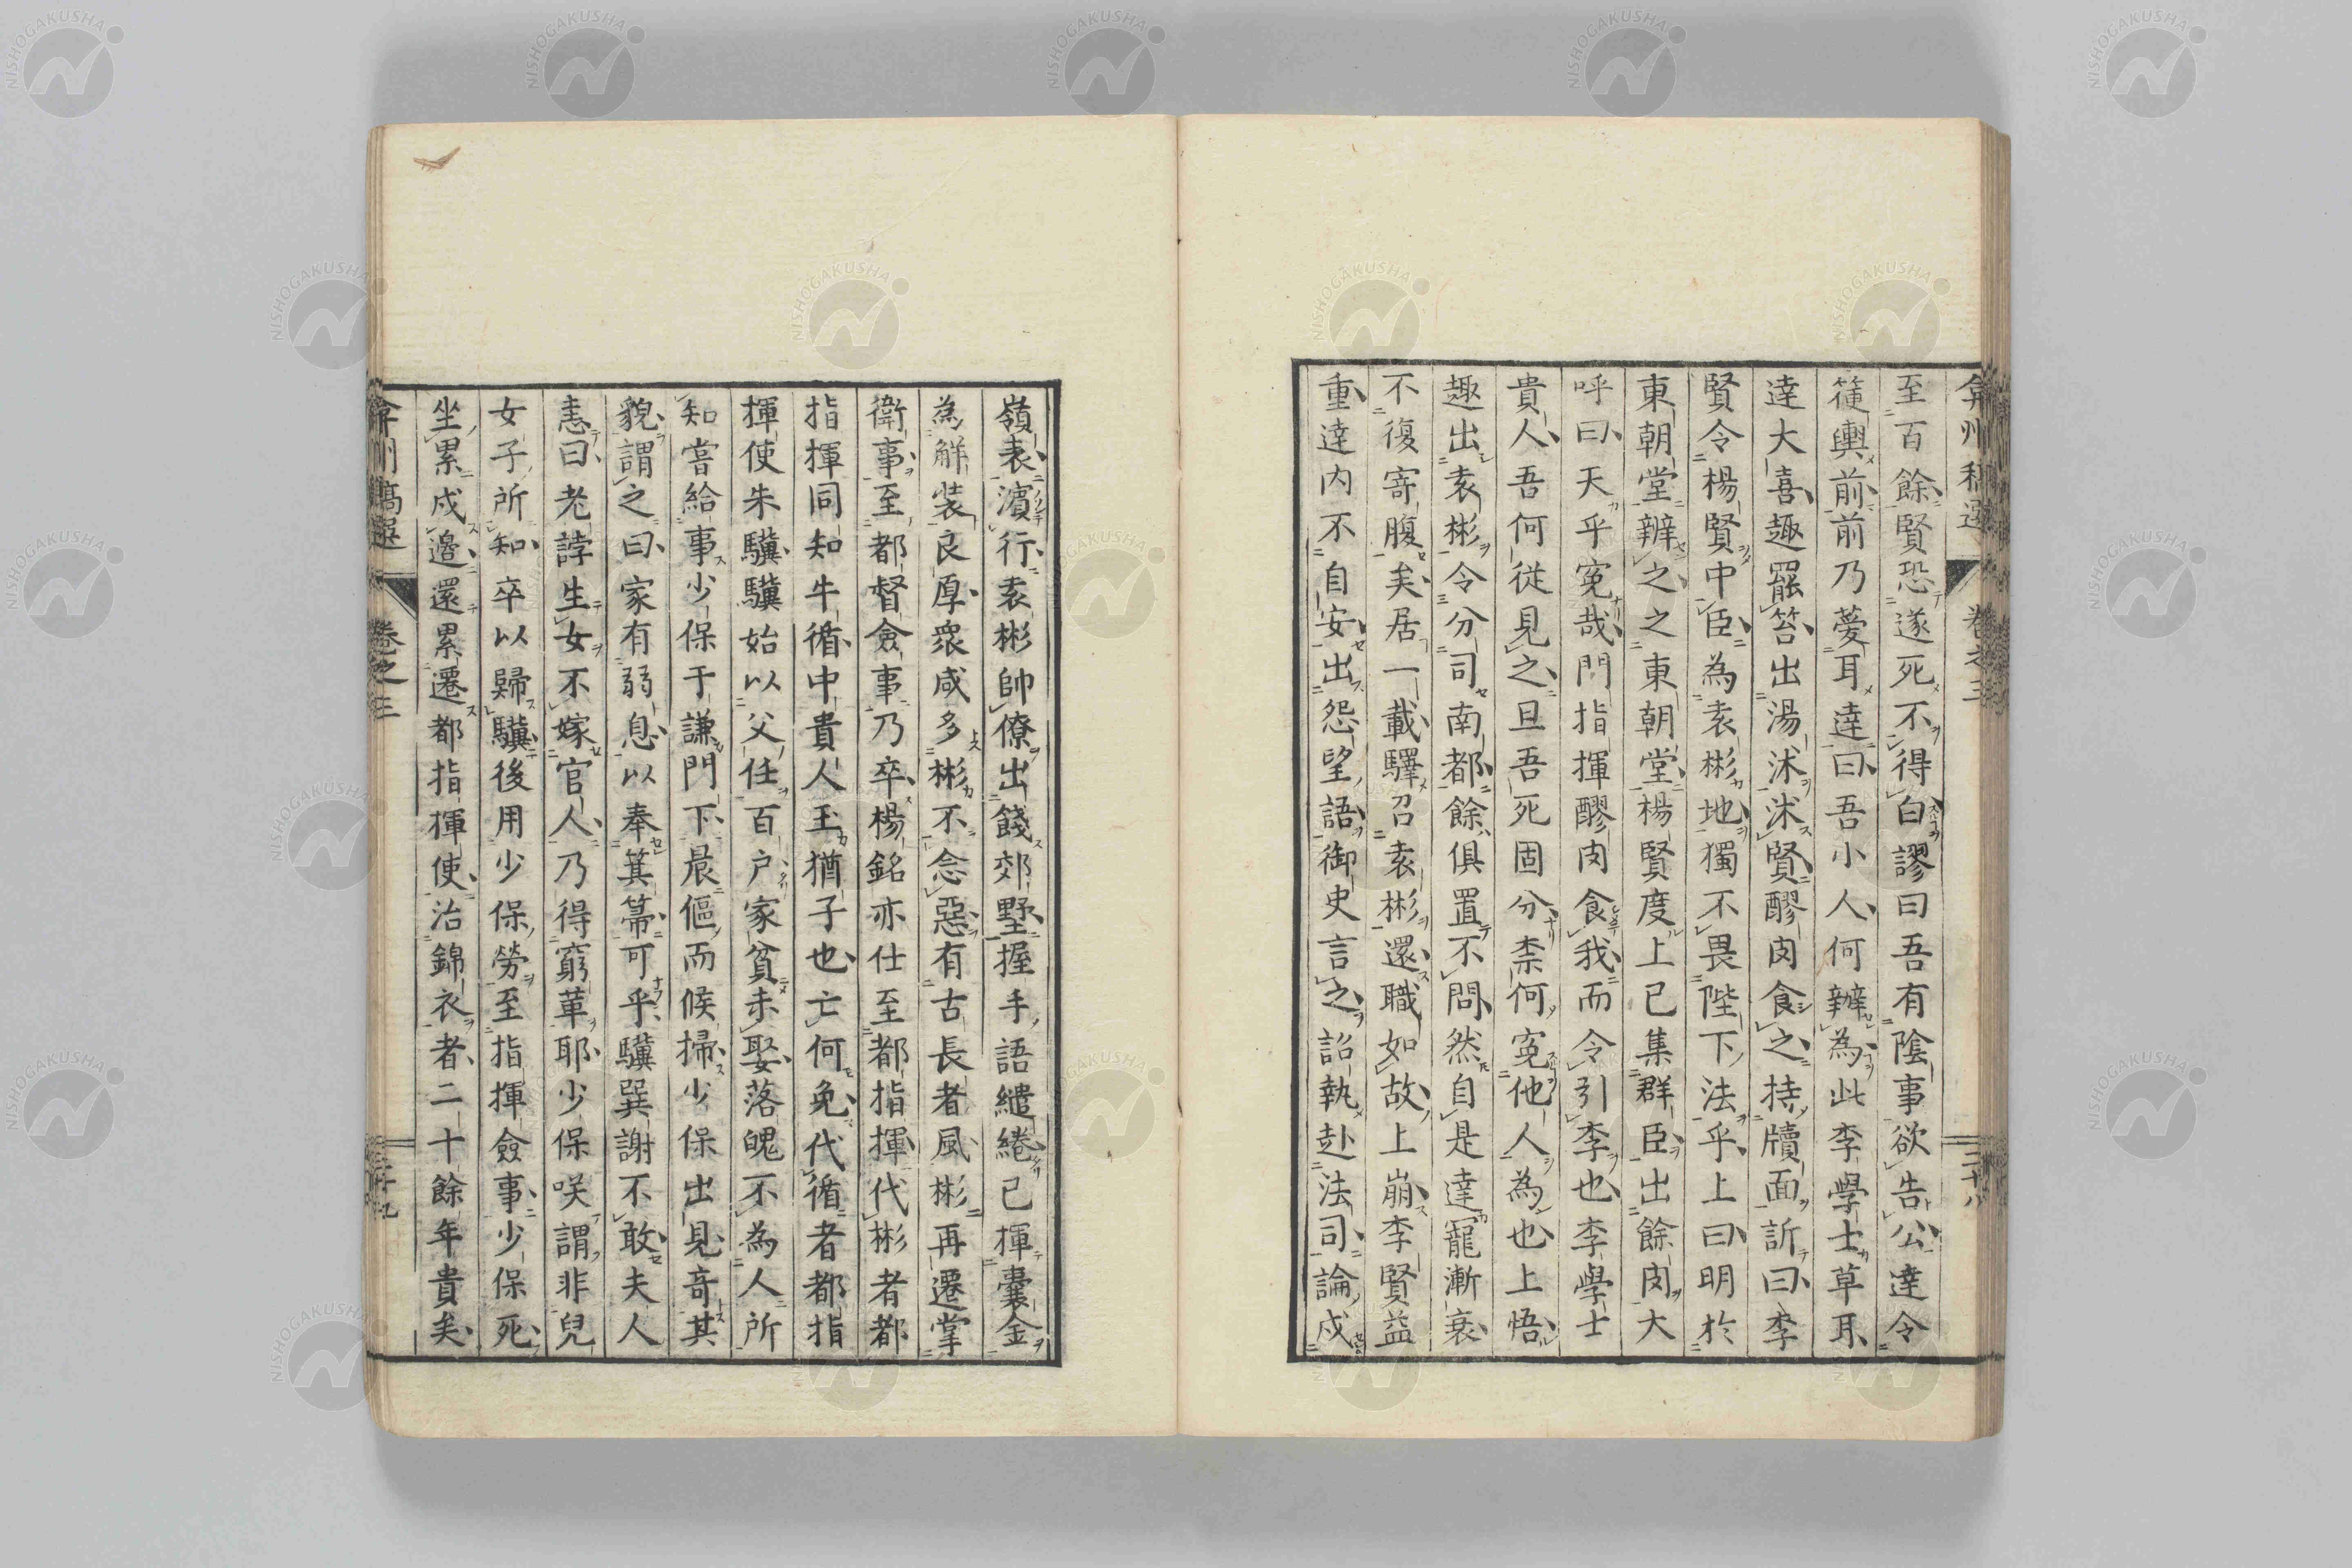 弇州稿選 卷之三 三十八
至百餘賢恐遂死不得白謬曰吾有陰事欲告公達令
籧輿前前乃蘷耳達曰吾小人何辦為此李學士草耳
達大喜趣罷笞出湯沐沐賢醪肉食之持牘面訢曰李
賢令楊賢中臣為袁彬地獨不畏陛下法乎上曰明於
東朝堂辦之之東朝堂楊賢度上已集群臣出餘肉大
呼曰天乎寃哉門指揮醪肉食我而令引李也李學士
貴人吾何從見之且吾死固分柰何寃他人為也上悟
趣出袁彬令分司南都餘俱置不問然自是達寵漸衰
不復寄腹矣居一載驛召袁彬還職如故上崩李賢益
重達内不自安出怨望語御史言之詔執赴法司論戍
嶺表濱行袁彬帥僚出餞郊墅握手語繾綣已揮囊金
為解裝良厚衆咸多彬不念惡有古長者風彬再遷掌
衛事至都督僉事乃卒楊銘亦仕至都指揮代彬者都
指揮同知牛循中貴人玉猶子也亡何免代循者都指
揮使朱驥驥始以父任百户家貧未娶落魄不為人所
知嘗給事少保于謙門下晨傴而候掃少保出見竒其
貌謂之曰家有弱息以奉箕箒可乎驥巽謝不敢夫人
恚曰老誖生女不嫁官人乃得窮革耶少保咲謂非兒
女子所知卒以歸驥後用少保勞至指揮僉事少保死
坐累戍邊還累遷都指揮使治錦衣者二十餘年貴矣
弇州稿選 卷之三 三十九
NISHOGAKUSHA